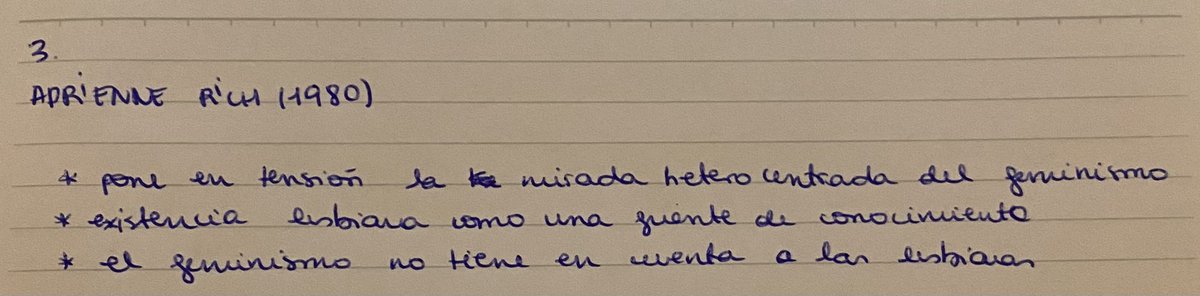 3.
ADRIENNE RICH (1980)
* pone en tensión la mirada hetero centrada del feminismo
* existencia lesbiana como una fuente de conocimiento
* el feminismo no tiene en cuenta a las lesbianas